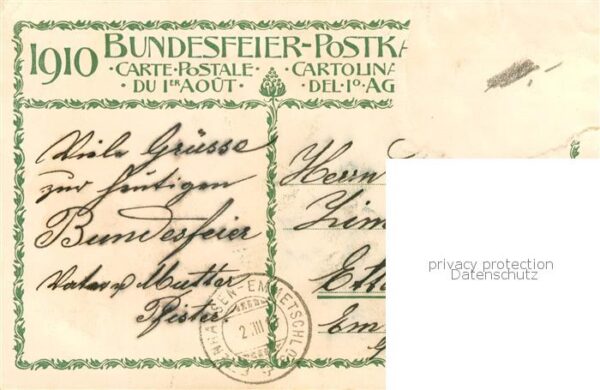 1910 BUNDESFEIER-POSTKA
CARTE·POSTALE · CARTOLINA
DU 1ER AOÛT · DEL·1o·AG
Viele Grüsse
zur heutigen
Bundesfeier
Vater u Mutter
Pfister.
Herrn
Zim
Em
EMMETSCHLO
2.III
privacy protection
Datenschutz